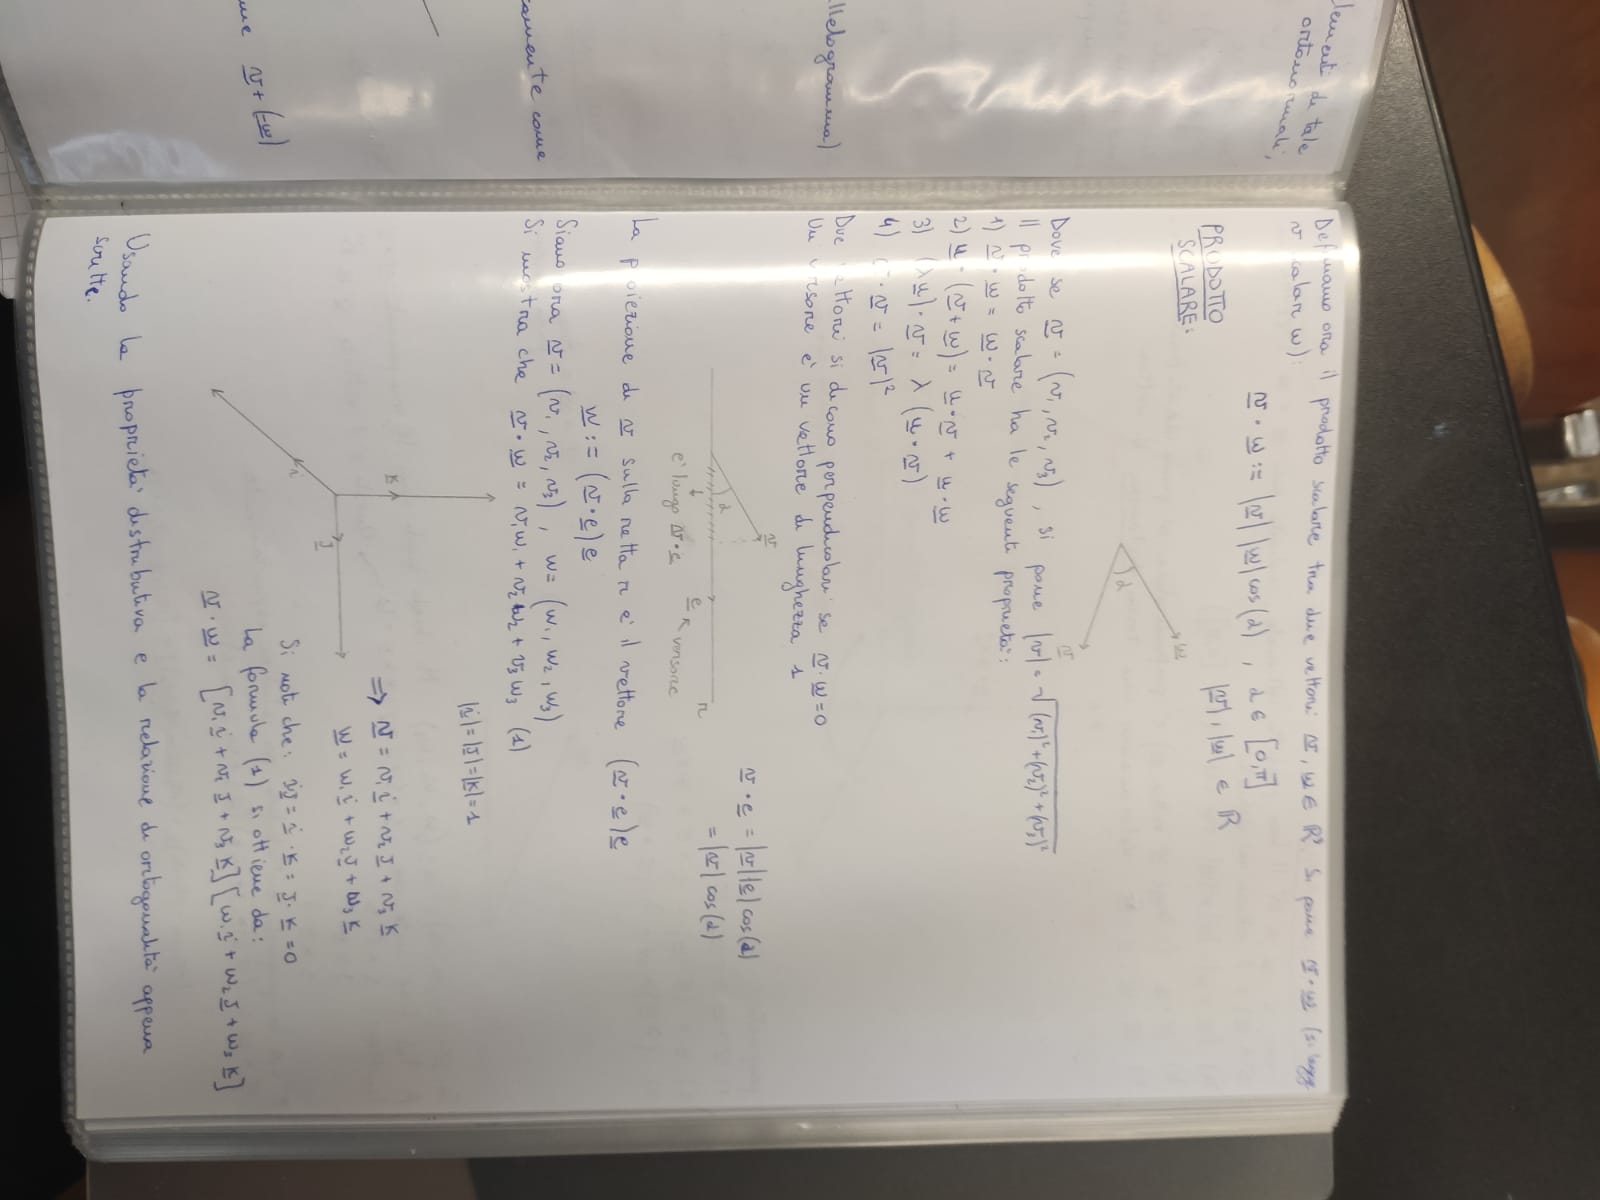 lementi di tale
ortonormali,
allelogramma)
camente come
me v + (-w)
Definiamo ora il prodotto scalare tra due vettori v, w ∈ R³. Si pone v·w (si legg
v scalar w):
v · w := |v| |w| cos(α), α ∈ [0,π]
|v|, |w| ∈ R
PRODOTTO
SCALARE:
w
α
v
Dove se v = (v₁, v₂, v₃), si pone |v| = √(v₁)²+(v₂)²+(v₃)²
Il prodotto scalare ha le seguenti proprietà:
1) v · w = w · v
2) u · (v + w) = u · v + u · w
3) (λu) · v = λ (u · v)
4) · v = |v|²
Due vettori si dicono perpendicolari se v · w = 0
Un versore è un vettore di lunghezza 1
v
α
e versore
r
è lungo v · e
v · e = |v||e| cos(α)
= |v| cos(α)
La proiezione di v sulla retta r è il vettore (v · e)e
w := (v · e)e
Siano ora v = (v₁, v₂, v₃), w = (w₁, w₂, w₃)
Si mostra che v · w = v₁w₁ + v₂w₂ + v₃w₃ (1)
|i| = |J| = |K| = 1
K
i
J
⇒ v = v₁i + v₂J + v₃K
w = w₁i + w₂J + w₃K
Si noti che: iJ = i · K = J · K = 0
La formula (1) si ottiene da:
v · w = [v₁i + v₂J + v₃K][w₁i + w₂J + w₃K]
Usando la proprietà distributiva e la relazione di ortogonalità appena
scritte.